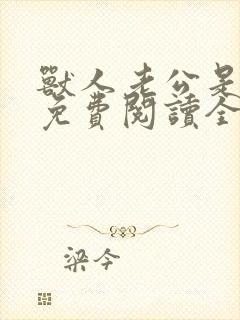 獸人老公是
免費閱讀全
梁今